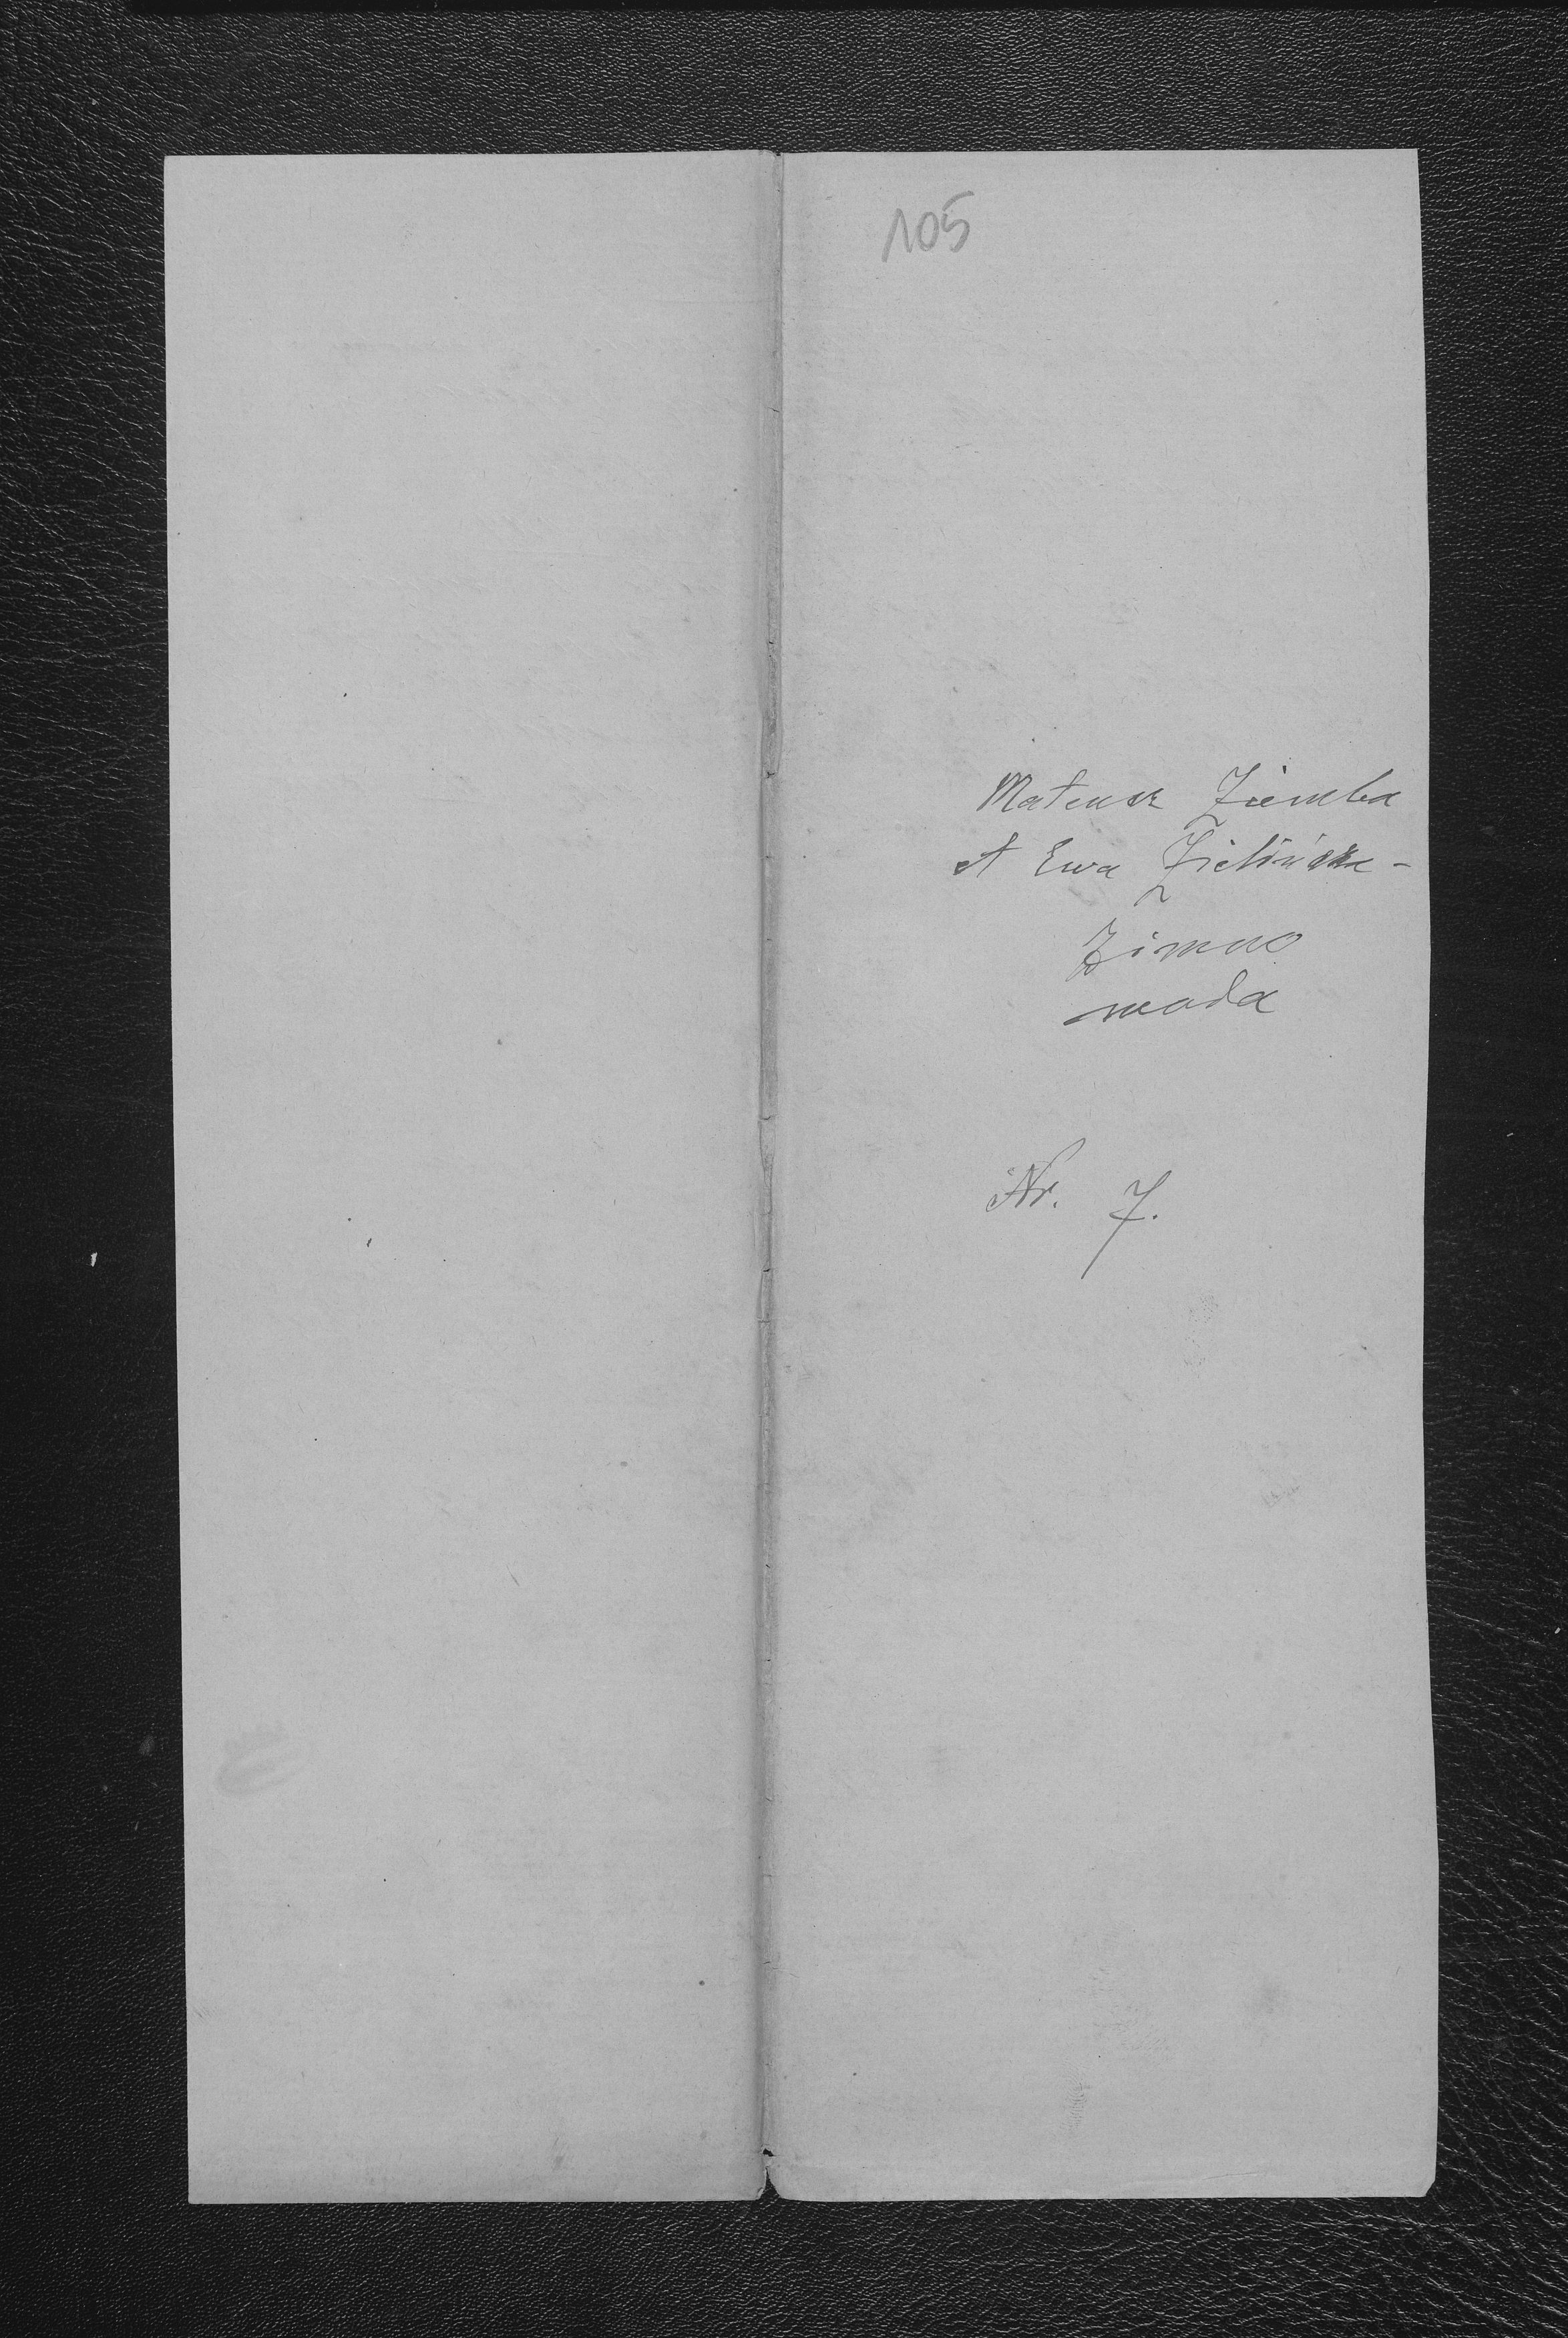 105
Mateusz Ziemba
et Ewa Zielińska -
Zimno
woda
Nr. 7.